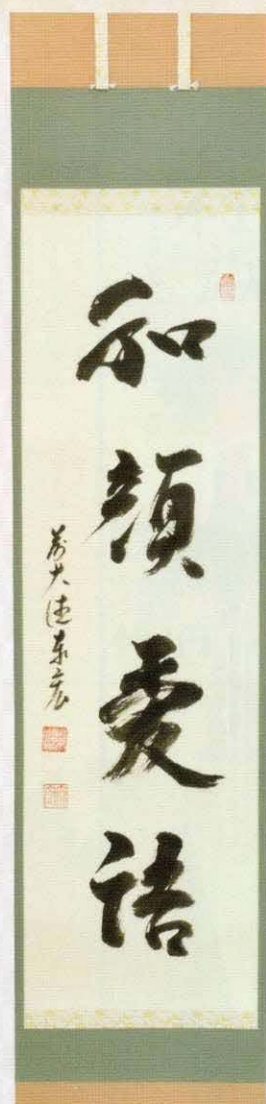 和顔愛語
前大徳東宏